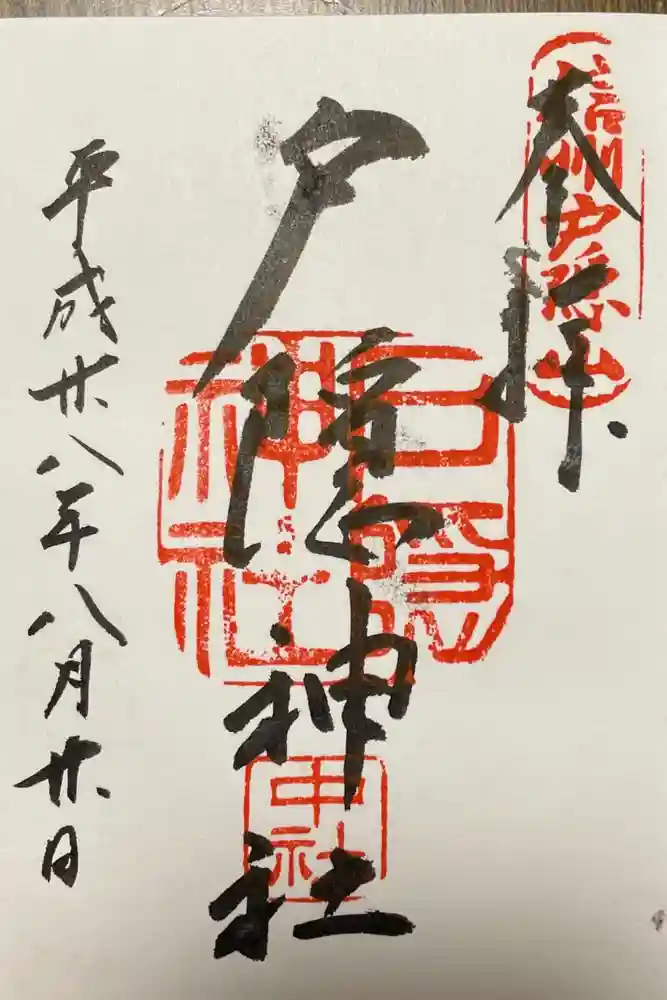 奉拝
信州戸隠山
戸隠神社
戸隠神社
中社
平成廿八年八月廿日